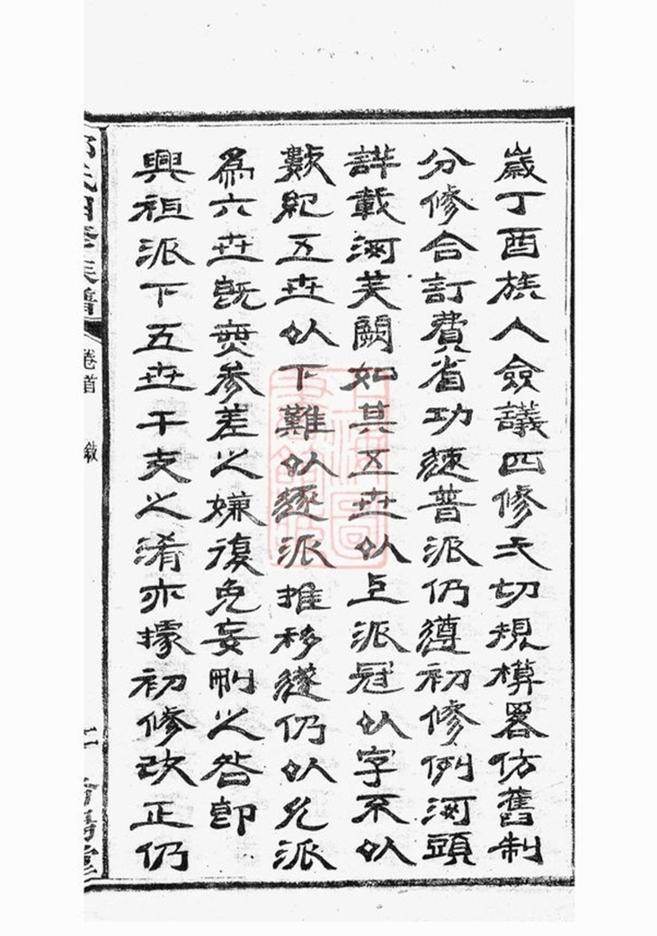 歲丁酉族人僉議四修弌切規模畧仿舊制
分修合訂費省功速普派仍遵初修例河頭
詳載河芙闕如其五世以上派冠以字不以
數紀五世以下難以逐派推移遂仍以允派
為六世既無參差之嫌復免妄刪之咎即
興祖派下五世干支之淆亦據初修改正仍
氏四修族譜
卷首
二
堂